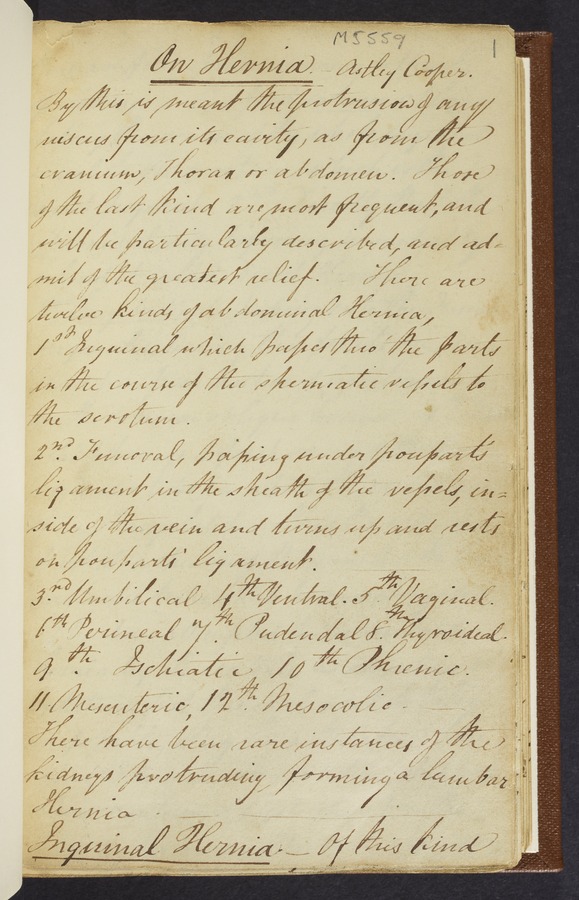 MS559
1
On Hernia. Astley Cooper.
By this is meant the protrusion of any
viscus from its cavity, as from the
cranium, Thorax or abdomen. Those
of the last kind are most frequent, and
will be particularly described, and ad=
mit of the greatest relief. There are
twelve kinds of abdominal Hernia,
1st Inguinal which passes thro' the parts
in the course of the spermatic vessels to
the scrotum.
2nd. Femoral, passing under pouparts
ligament in the sheath of the vessels, in=
side of the vein and turns up and rests
on pouparts' ligament.
3rd Umbilical 4th Ventral. 5th Vaginal.
6th Perineal 7th. Pudendal 8th. Thyroideal.
9th. Ischiatic 10th Phrenic.
11 Mesenteric, 12th. Mesocolic.
There have been rare instances of the
kidneys protruding, forming a lumbar
Hernia.
Inguinal Hernia. — Of this kind